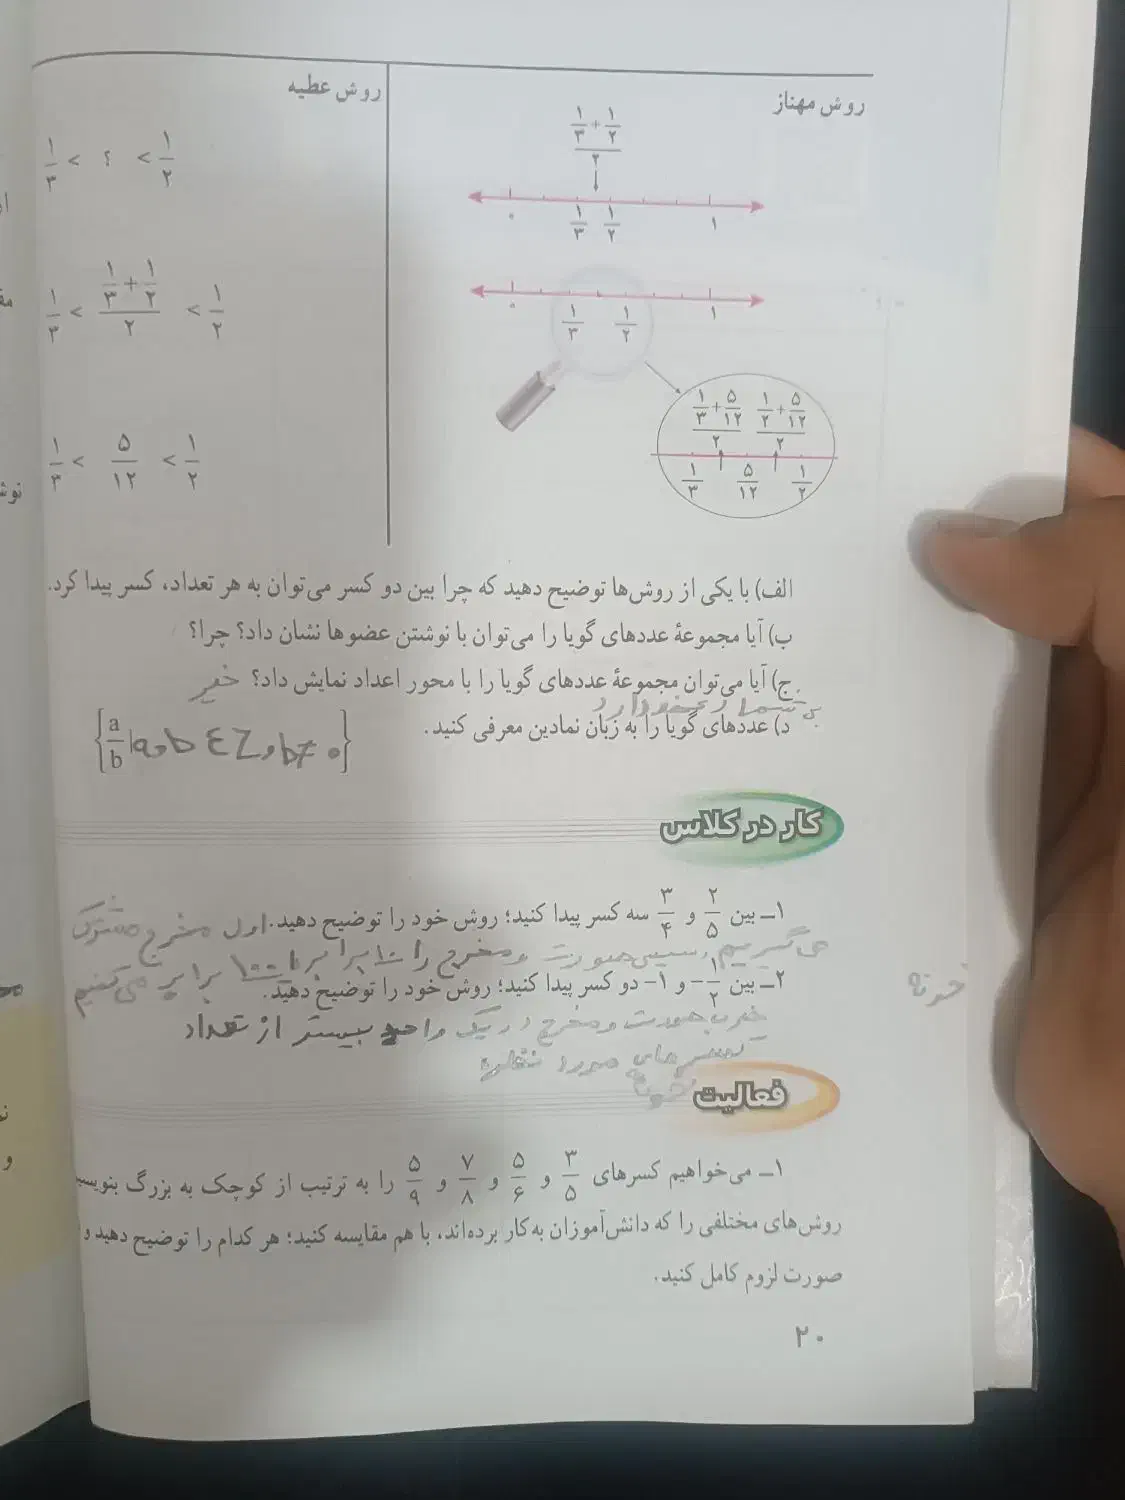 روش مهناز
۱/۳ + ۱/۲
۲
۰ ۱/۳ ۱/۲ ۱
۰ ۱/۳ ۱/۲ ۱
۱/۳ + ۵/۱۲ ۱/۲ + ۵/۱۲
۲ ۲
۱/۳ ۵/۱۲ ۱/۲
روش عطیه
۱/۳ < ؟ < ۱/۲
۱/۳ < (۱/۳ + ۱/۲)/۲ < ۱/۲
۱/۳ < ۵/۱۲ < ۱/۲
الف) با یکی از روش‌ها توضیح دهید که چرا بین دو کسر می‌توان به هر تعداد، کسر پیدا کرد.
ب) آیا مجموعهٔ عددهای گویا را می‌توان با نوشتن عضوها نشان داد؟ چرا؟
ج) آیا می‌توان مجموعهٔ عددهای گویا را با محور اعداد نمایش داد؟ خیر
بی شمار
د) عددهای گویا را به زبان نمادین معرفی کنید. {a/b | a و b ∈ Z و b ≠ ۰}
کار در کلاس
۱ــ بین ۲/۵ و ۳/۴ سه کسر پیدا کنید؛ روش خود را توضیح دهید. اول مخرج مشترک
می‌گیریم سپس صورت و مخرج را ۱۰ برابر یا ۱۰۰ برابر می‌کنیم
۲ــ بین ۱/۲− و ۱− دو کسر پیدا کنید؛ روش خود را توضیح دهید.
ضرب صورت و مخرج در یک واحد بیشتر از تعداد
کسرهای مورد نظر
فعالیت
۱ــ می‌خواهیم کسرهای ۳/۵ و ۵/۶ و ۷/۸ و ۵/۹ را به ترتیب از کوچک به بزرگ بنویسیم
روش‌های مختلفی را که دانش‌آموزان به‌کار برده‌اند، با هم مقایسه کنید؛ هر کدام را توضیح دهید و
صورت لزوم کامل کنید.
۲۰